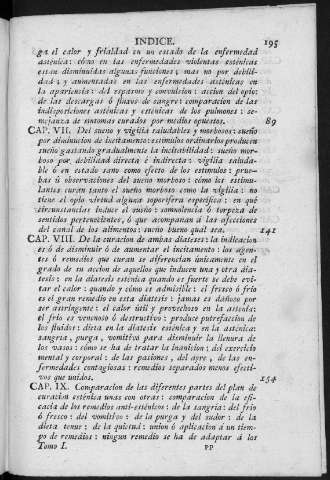 INDICE. 195
ga el calor y frialdad en un estado de la enfermedad
asténica: cómo en las enfermedades violentas esténicas
estan disminuidas algunas funciones; mas no por debili-
dad; y aumentadas en las enfermedades asténicas en
la apariencia: del espasmo y convulsion: accion del opio:
de las descargas ó fluxos de sangre: comparacion de las
indisposiciones asténicas y esténicas de los pulmones: se-
mejanza de sintomas curados por medios opuestos. 89
CAP. VII. Del sueño y vigilia saludables y morbosos: sueño
por diminucion de incitamento: estimulos ordinarios producen
sueño gastando gradualmente la incitabilidad: sueño mor-
boso por debilidad directa é indirecta: vigilia saluda-
ble ó en estado sano como efecto de los estimulos: prue-
bas ú observaciones del sueño morboso: cómo los estimu-
lantes curan tanto el sueño morboso como la vigilia: no
tiene el opio virtud alguna soporifera especifica: en qué
circunstancias induce el sueño: somnolencia ó torpeza de
sentidos pertenecientes, ó que acompañan á las afecciones
del canal de los alimentos: sueño bueno qual sea. 142
CAP. VIII. De la curacion de ambas diateses: la indicacion
es ó de disminuir ó de aumentar el incitamento: los agen-
tes ó remedios que curan se diferencian únicamente en el
grado de su accion de aquellos que inducen una y otra dia-
tesis: en la diatesis esténica quando es fuerte se debe evi-
tar el calor: quando y cómo es admisible: el fresco ó frio
es el gran remedio en esta diatesis: jamas es dañoso por
ser astringente: el calor útil y provechoso en la astenia:
el frio es venenoso ó destructivo: produce putrefaccion de
los fluidos: dieta en la diatesis esténica y en la asténica:
sangria, purga, vomitivo para disminuir la llenura de
los vasos: cómo se ha de tratar la inanicion: del exercicio
mental y corporal: de las pasiones, del ayre, de las en-
fermedades contagiosas: remedios separados menos efecti-
vos que unidos. 154
CAP. IX. Comparacion de las diferentes partes del plan de
curacion esténica unas con otras: comparacion de la efi-
cacia de los remedios anti-esténicos: de la sangria: del frio
ó fresco: del vomitivo: de la purga y del sudor: de la
dieta tenue: de la quietud: union ó aplicacion á un tiem-
po de remedios: ningun remedio se ha de adaptar á los
Tomo I. PP